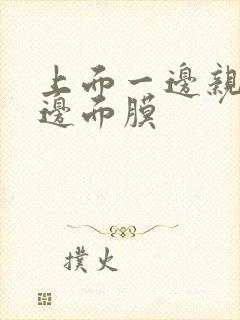 上而一邊親
邊而膜
撲火